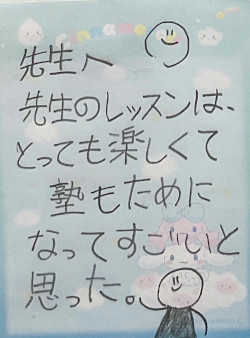 先生へ
先生のレッスンは、
とっても楽しくて
塾もために
なってすごいと
思った。